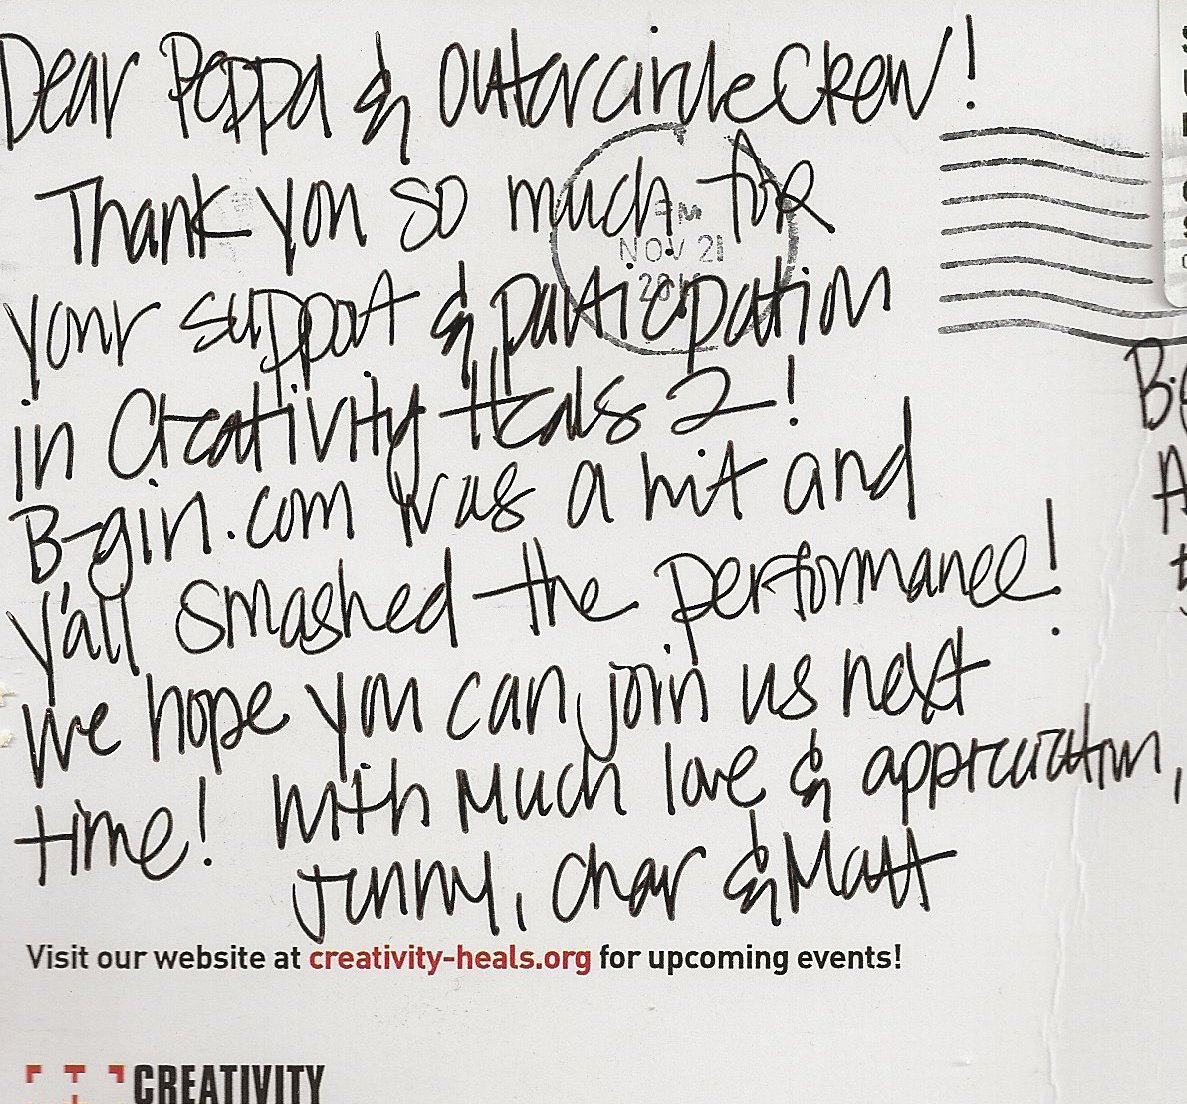 Dear Peppa & Outercircle Crew!
Thank you so much for
your support & participation
in Creativity Heals 2!
B-gin.com was a hit and
y'all smashed the performance!
We hope you can join us next
time! With Much love & appreciation,
Jenny, Char & Matt
PM
NOV 21
Visit our website at creativity-heals.org for upcoming events!
CREATIVITY